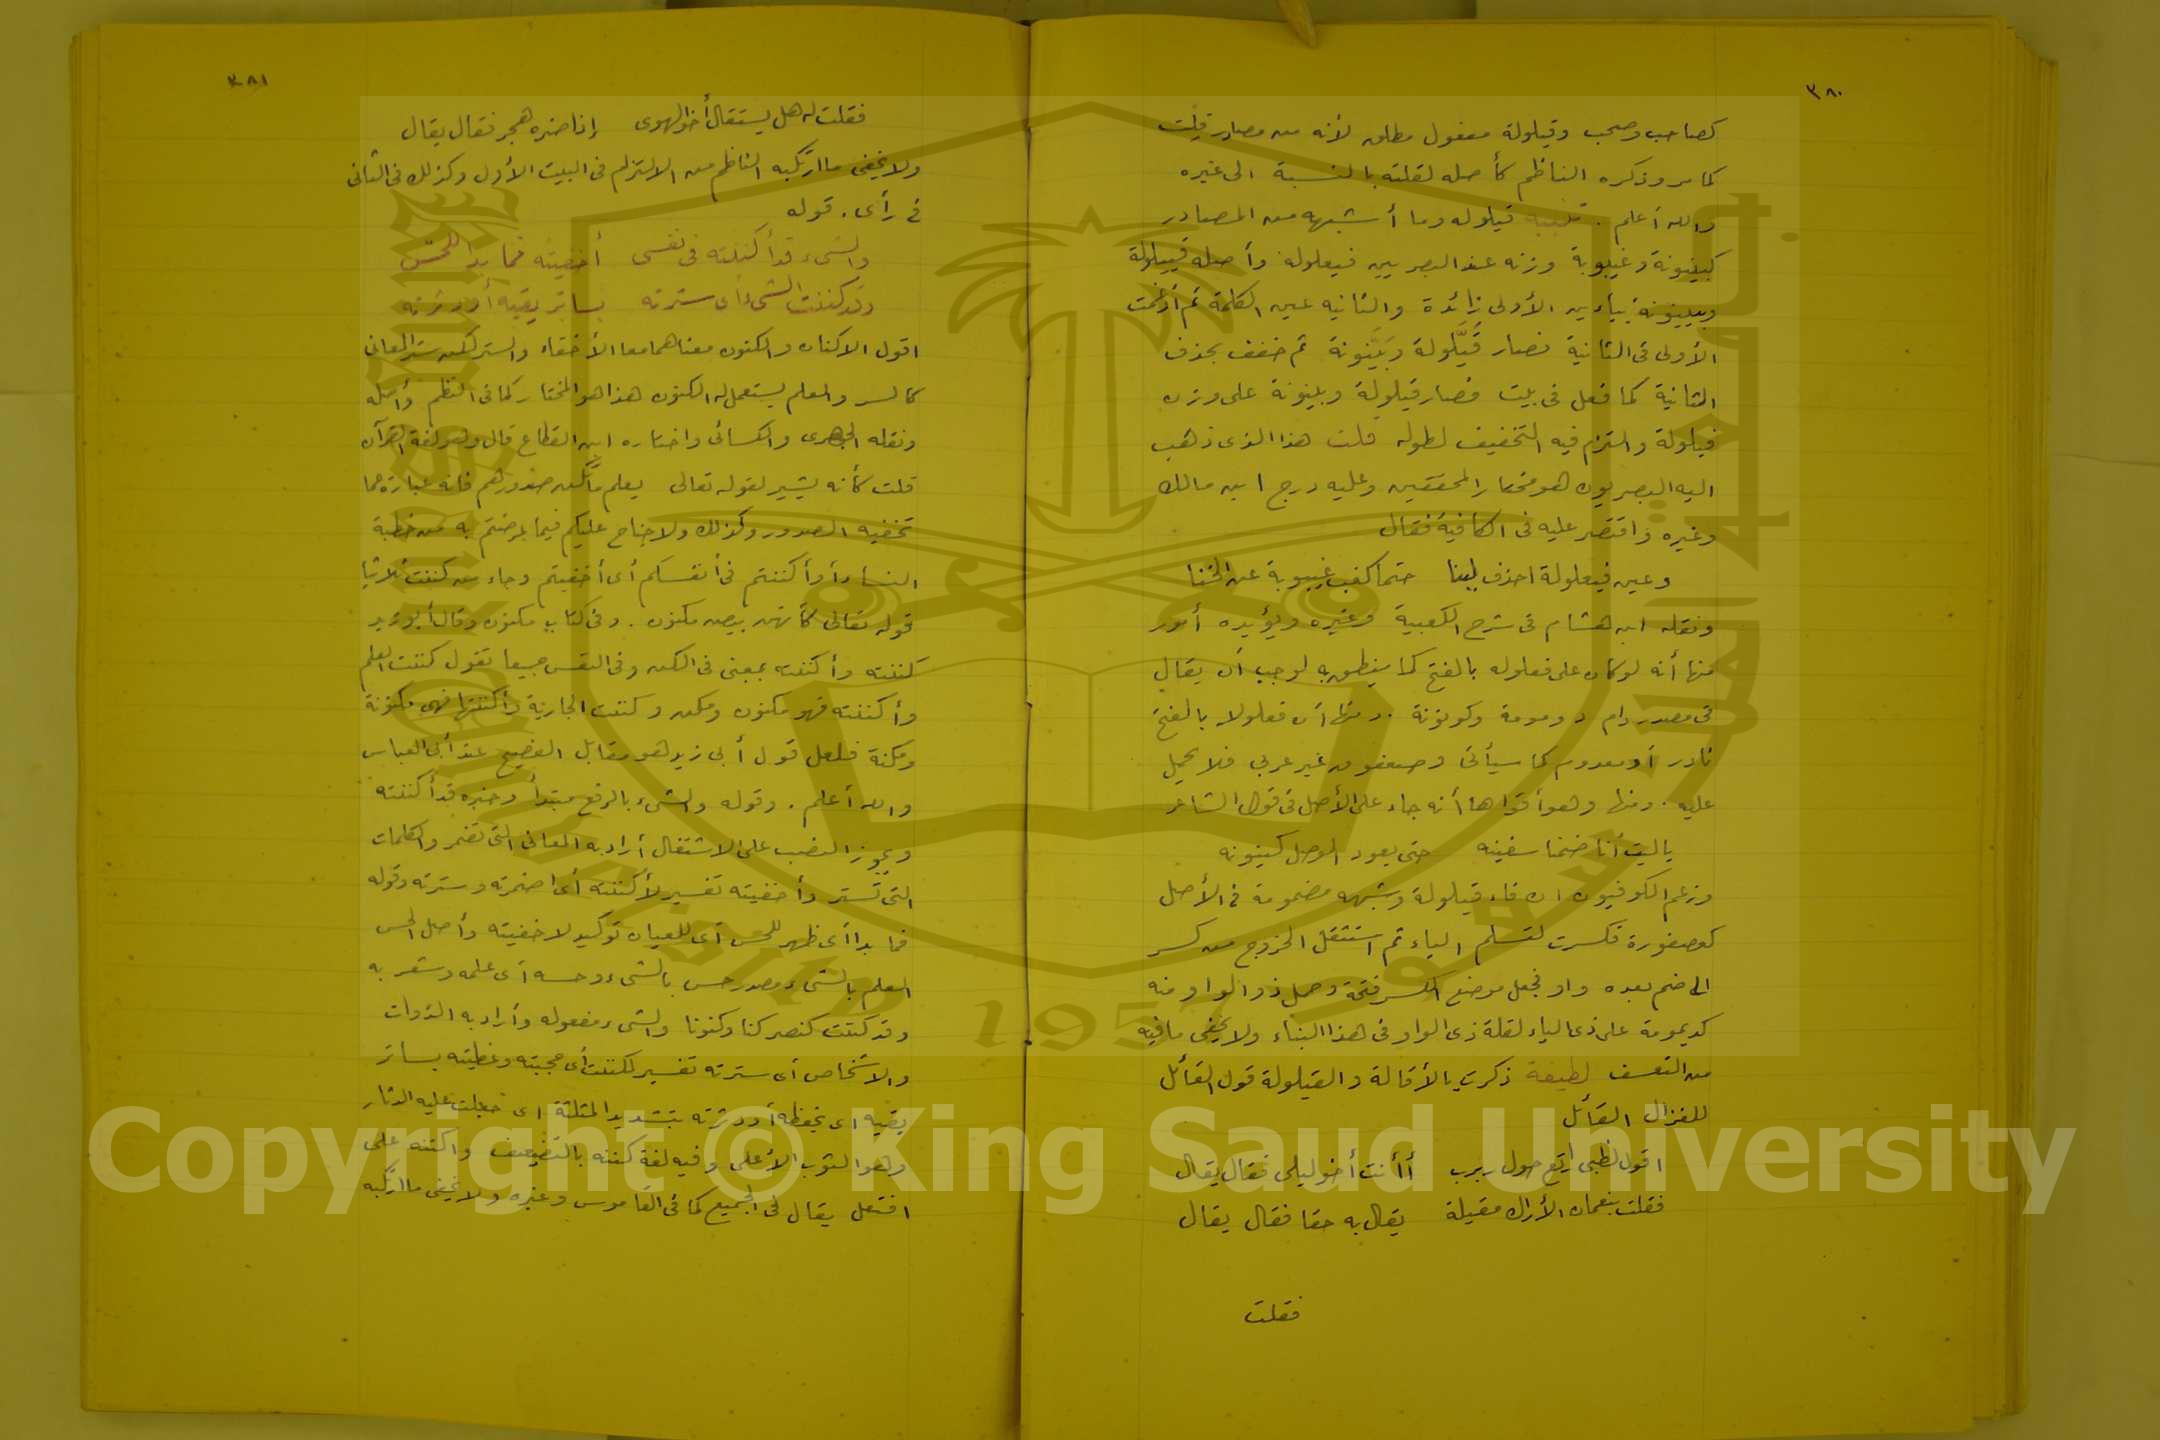 ٣٨٠
كصاحب وصحب وقيلولة مفعول مطلق لأنه من مصادر قِلت
كما مر وذكره الناظم كأصله لقلته بالنسبة الى غيره
والله أعلم . تنبيه قيلوله وما أشبهه من المصادر
كبينونة وغيبوبة وزنه عند البصريين فيعلولة وأصله قييلولة
وبيينونة بياءين الأولى زائدة والثانيه عين الكلمة ثم أدغمت
الأولى فى الثانية فصار قَيَّلولة وبَيَّنونة ثم خفف بحذف
الثانية كما فعل فى بيت فصار قيلولة وبينونة على وزن
فيلولة والتزم فيه التخفيف لطوله قلت هذا الذى ذهب
اليه البصريون هو مختار المحققين وعليه درج ابن مالك
وغيره واقتصر عليه فى الكافية فقال
وعين فيعلولة احذف لينا حتما كغب غيبوبة عن الخنا
ونقله ابن هشام فى شرح الكعبية وغيره ويؤيده أمور
منها أنه لو كان على فعلوله بالفتح كما ينطق به لوجب أن يقال
فى مصدر دام دومومة وكونونة . ومنها أن فعلولا بالفتح
نادر أو معدوم كما سيأتى وصعفوق غير عربي فلا يحمل
عليه . ومنها وهو أقواها أنه جاء على الأصل فى قول الشاعر
يا ليت أنا ضمنا سفينه حتى يعود الوصل كينونه
وزعم الكوفيون ان فاء قيلولة وشبهه مضمومة فى الأصل
كعصفورة فكسرت لتسلم الياء ثم استثقل الخروج من كسر
الى ضم بعده واو فجعل موضع الكسر فتحة وحمل ذو الواو منه
كديمومة على ذى الياء لقلة ذى الواو فى هذا البناء ولا يخفى ما فيه
من التعسف لطيفة ذكرت بالأقالة والقيلولة قول القائل
للغزال القائل
اقول لظبى ارتع حول ربرب أأنت أخو ليلى فقال يقال
فقلت بنعمان الأراك مقيلة يقال به حقا فقال يقال
فقلت
٣٨١
فقلت له هل يستقال أخو الهوى إذا ضره هجر فقال يقال
ولا يخفى ما ارتكبه الناظم من الالتزام فى البيت الأول وكذلك فى الثانى
فى رأى . قوله
والشىء قد أكننته فى نفسى أخفيته فما بدا للحس
وقد كننت الشىء أى سترته بساتر يقيه أو دثرته
اقول الاكنان والكنون معناهما معا الأخفاء والستر لكن ستر المعانى
كالسر والعلم يستعمل له الكنون هذا هو المختار كما فى النظم وأصله
ونقله الجوهرى والكسائى واختاره ابن القطاع قال وهو لغة القرآن
قلت كأنه يشير لقوله تعالى يعلم ما تكن صدورهم فانه عبارة عما
تخفيه الصدور وكذلك ولا جناح عليكم فيما عرضتم به من خطبة
النساء أو أكننتم فى أنفسكم أى أخفيتم وجاء من كننت ثلاثيا
قوله تعالى كأنهن بيض مكنون . وفى كتاب مكنون وقال أبو زيد
كننته وأكننته بمعنى فى الكن وفى النفس جميعا تقول كننت العلم
وأكننته فهو مكنون ومكن وكننت الجارية وأكننتها فهى مكنونة
ومكنة فلعل قول أبى زيد هو مقابل الفصيح عند أبى العباس
والله أعلم . وقوله والشىء بالرفع مبتدأ وخبره قد أكننته
ويجوز النصب على الاشتغال أراد به المعانى التى تضمر والكلمات
التى تستر وأخفيته تفسير لأكننته أى اضمرته وسترته وقوله
فما بدا أى ظهر للحس أى للعيان توكيد لاخفيته وأصل الحس
العلم بالشىء مصدر حس بالشىء وحسه أى علمه وشعر به
وقد كننت كنصر كنا وكنونا والشىء مفعوله وأراد به الذوات
والاشخاص أى سترته تفسير لكننت أى حجبته وغطيته بساتر
يقيه اى يحفظه أو دثرته بتشديد المثلثة اى جعلت عليه الدثار
وهو الثوب الأعلى وفيه لغة كننه بالتضعيف واكتنه على
افتعل يقال فى الجميع كما فى القاموس وغيره ولا يخفى ما ارتكبه
Copyright © King Saud University
King Saud University
1957